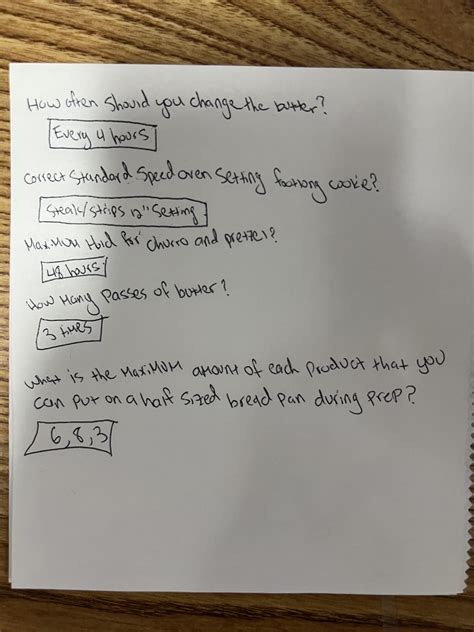 How often should you change the butter?
Every 4 hours
Correct Standard Speed oven Setting footlong cookie?
Steak/strips 12" Setting
Maximum Hold for churro and pretzel?
48 hours
How Many Passes of butter?
3 times
What is the Maximum amount of each product that you
can put on a half sized bread pan during prep?
6, 8, 3